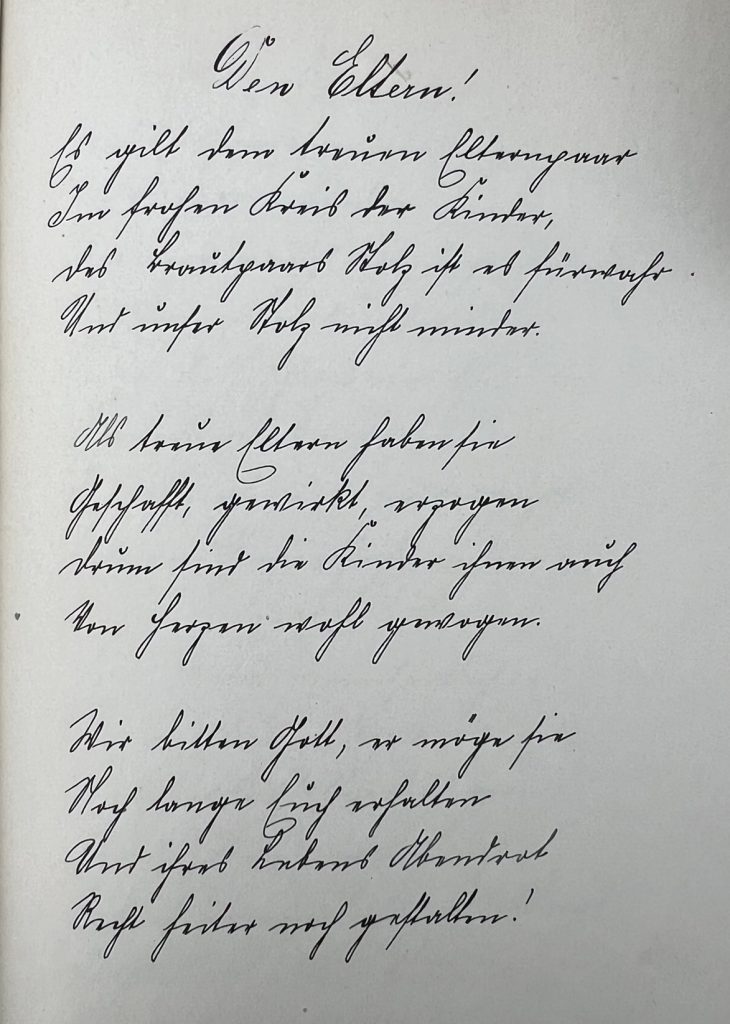 Den Eltern!
Es gilt dem treuen Elternpaar
Im frohen Kreis der Kinder,
des Brautpaars Stolz ist es fürwahr.
Und unser Stolz nicht minder.
Als treue Eltern haben sie
Geschafft, gewirkt, erzogen
drum sind die Kinder ihnen auch
Von Herzen wohl gewogen.
Wir bitten Gott, er möge sie
Noch lange Euch erhalten
Und ihres Lebens Abendrot
Recht heiter noch gestalten!